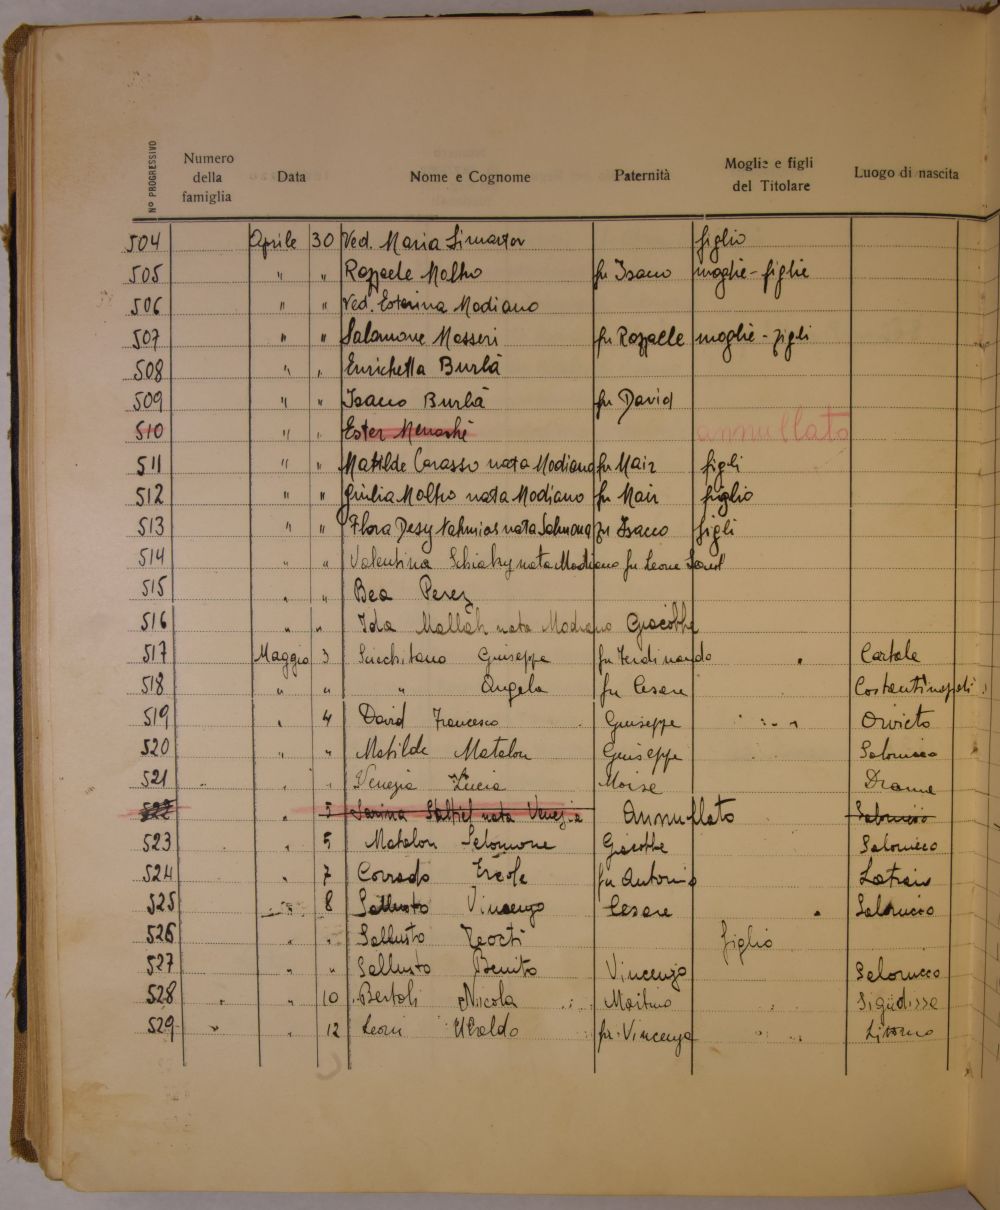 Nº PROGRESSIVO Numero della famiglia Data Nome e Cognome Paternità Moglie e figli del Titolare Luogo di nascita
504 Aprile 30 Ved. Maria figlio
505 " " Raffaele Molho fu Isacco moglie - figlie
506 " " Ved. Esterina Modiano
507 " " Salamone Masseri fu Raffaele moglie - figli
508 " " Enrichetta Burlà
509 " " Isacco Burlà fu David
510 " " Ester Menashé annullato
511 " " Matilde Carasso nata Modiano fu Mair figli
512 " " Giulia Molho nata Modiano fu Mair figlio
513 " " Flora Desy Nahmias nata fu Isacco figli
514 " " Valentina Schiaky nata Modiano fu Leone
515 " " Bea Perez
516 " " Ida Mallah nata Modiano Giacobbe
517 Maggio 3 Giuseppe fu Ferdinando
518 " " " Angela fu Cesare Costantinopoli
519 " 4 David Francesco Giuseppe " " Orvieto
520 " " Matilde Matalon Giuseppe Salonicco
521 " " Venezia Lucia Moise Drama
522 " 5 Sarina Saltiel nata Venezia Annullato Salonicco
523 " 5 Matalon Salomone Giacobbe Salonicco
524 " 7 Corrado Ercole fu Antonio
525 " 8 Sallusto Vincenzo Cesare Salonicco
526 " " Sallusto figlio
527 " " Sallusto Benito Vincenzo Salonicco
528 " 10 Bertoli Nicola
529 " 12 Leoni Ubaldo fu Vincenzo Livorno